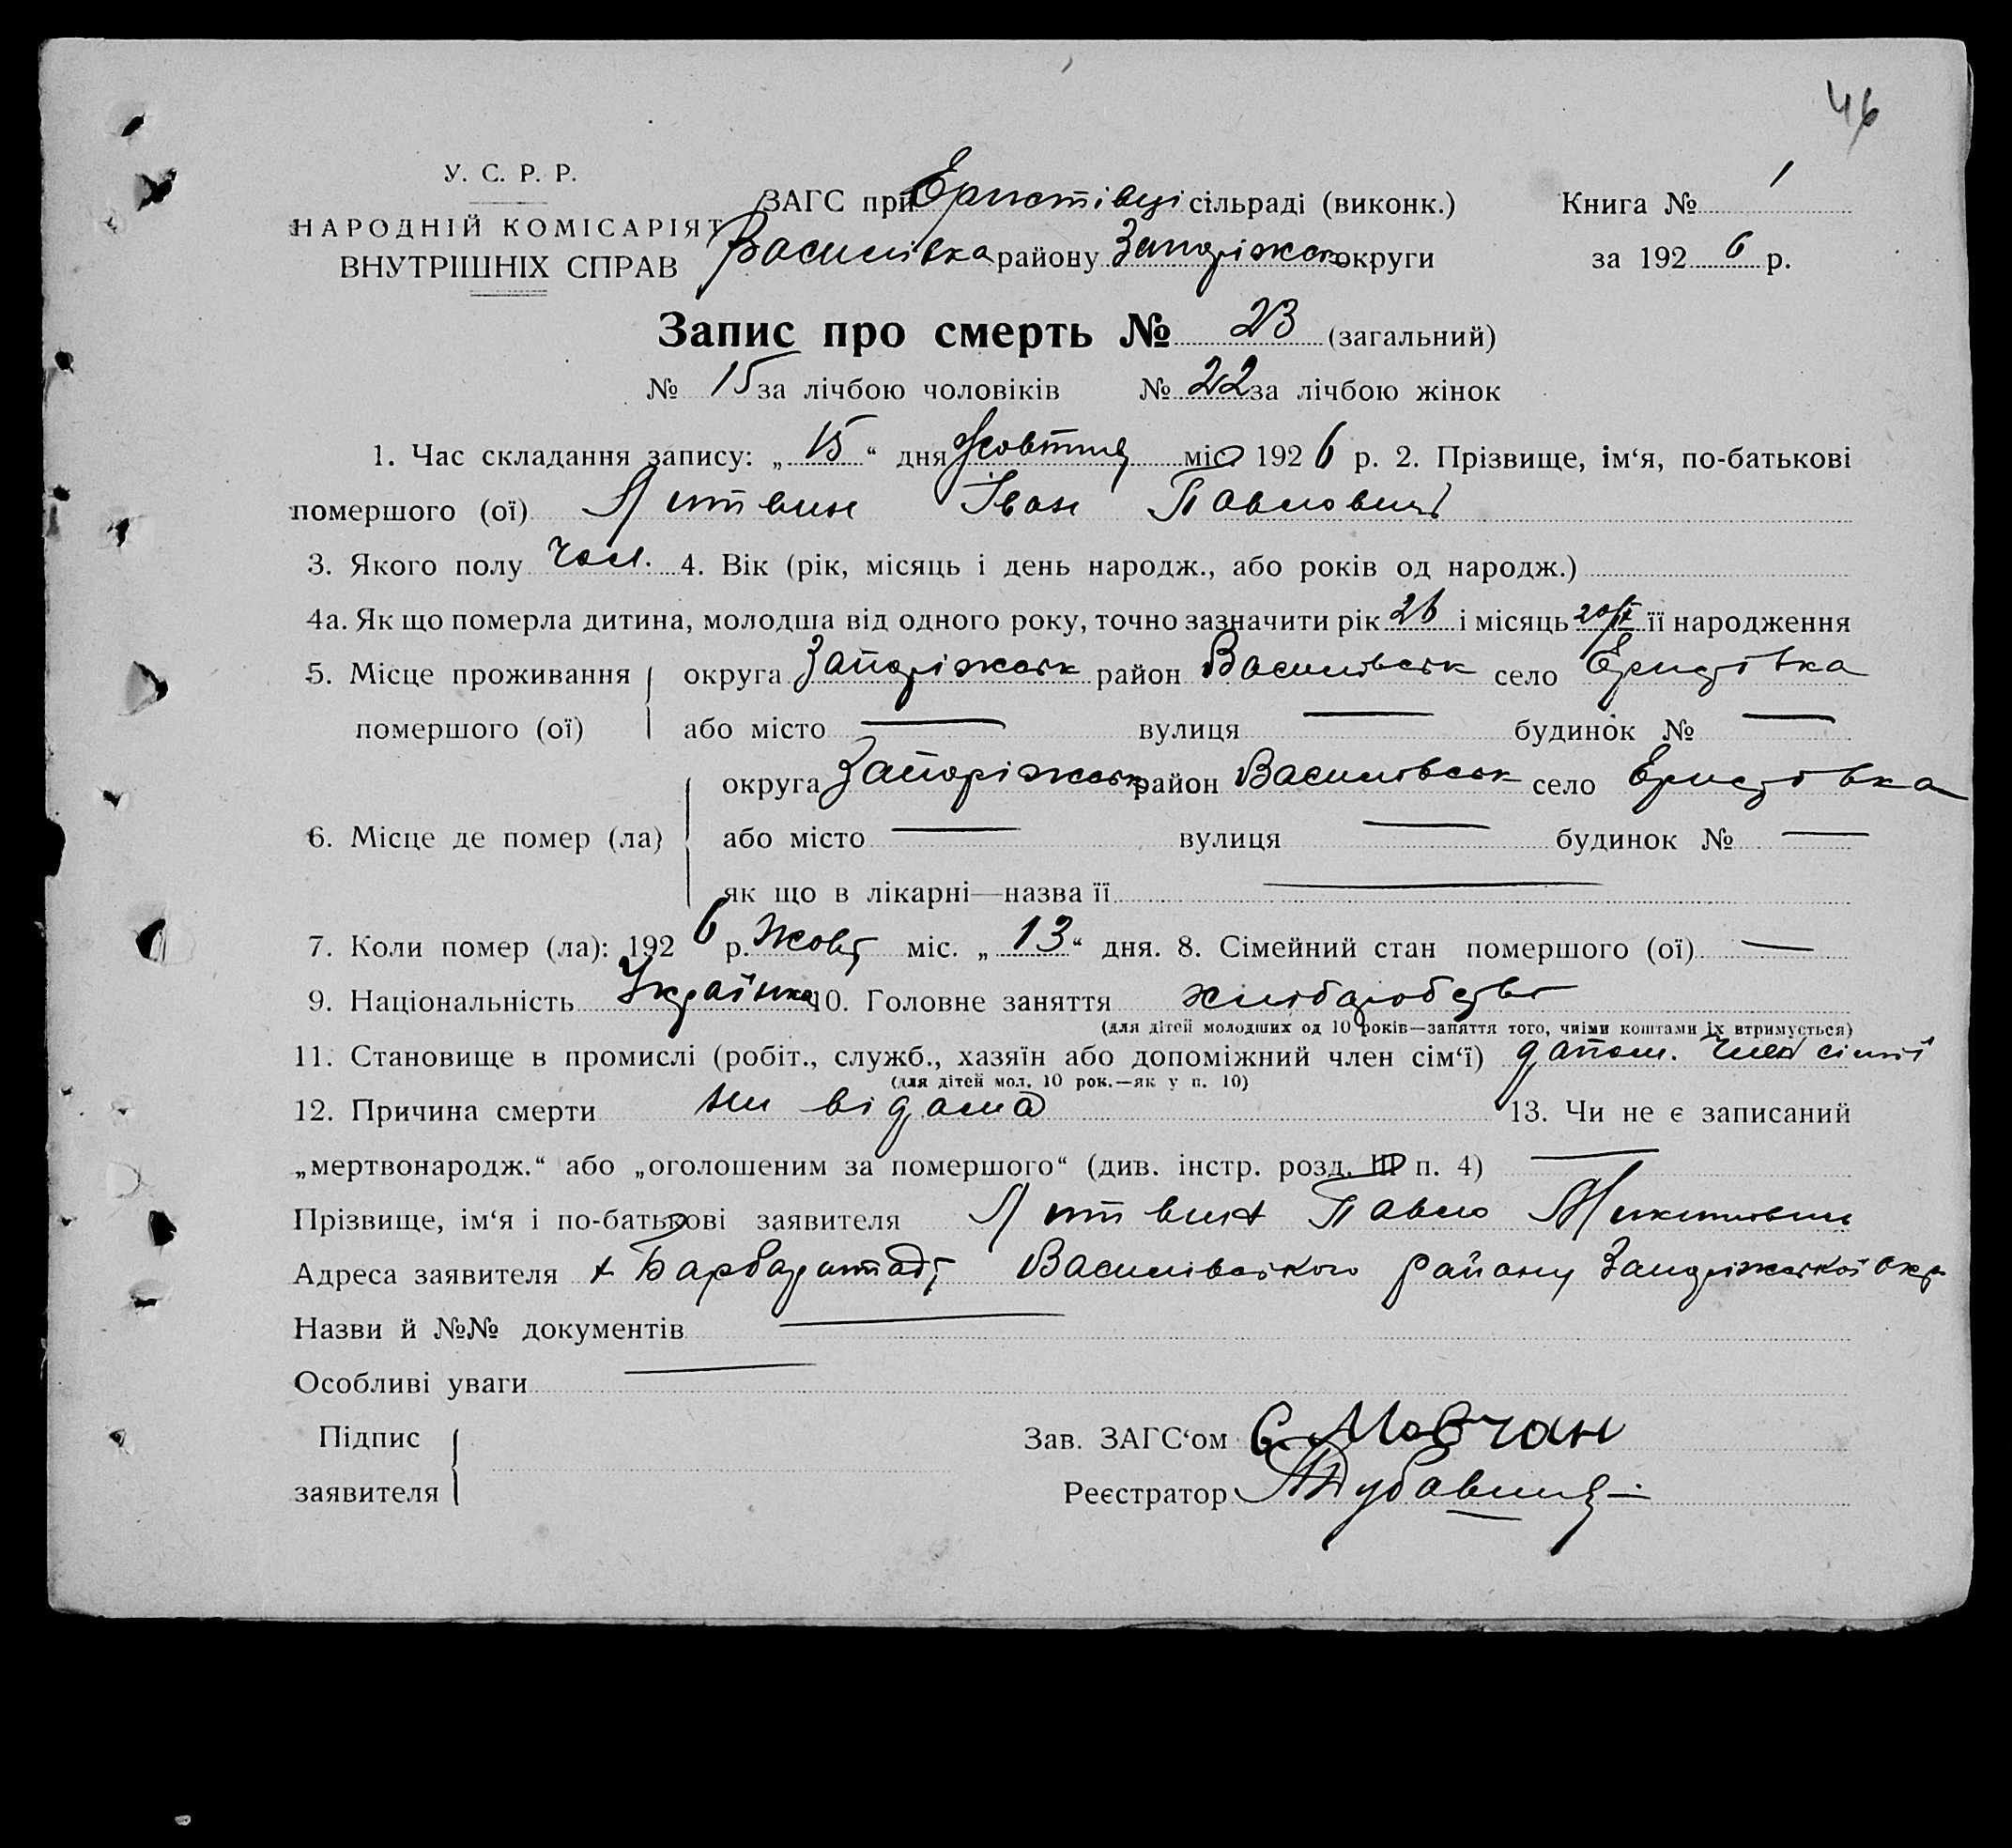 46
У. С. Р. Р.
НАРОДНІЙ КОМІСАРІЯТ
ВНУТРІШНІХ СПРАВ
ЗАГС при Еристівці сільраді (виконк.)
Василівка району Запоріжськ округи
Книга № 1
за 1926 р.
Запис про смерть № 23 (загальний)
№ 15 за лічбою чоловіків № 22 за лічбою жінок
1. Час складання запису: „15“ дня Жовтня міс. 1926 р. 2. Прізвище, ім‘я, по-батькові
помершого (ої) Литвин Іван Павлович
3. Якого полу чол. 4. Вік (рік, місяць і день народж., або років од народж.)
4а. Як що померла дитина, молодша від одного року, точно зазначити рік 26 і місяць її народження
5. Місце проживання помершого (ої) округа Запоріжськ район Василівськ село Еристівка
або місто — вулиця — будинок № —
6. Місце де помер (ла) округа Запоріжськ район Василівськ село Еристівка
або місто — вулиця — будинок № —
як що в лікарні—назва її —
7. Коли помер (ла): 1926 р. Жовт міс. „13“ дня. 8. Сімейний стан помершого (ої) —
9. Національність Українка 10. Головне заняття хліборобство
(для дітей молодших од 10 років—заняття того, чиїми коштами їх втримується)
11. Становище в промислі (робіт., служб., хазяїн або допоміжний член сім‘ї) допом. член сімї
(для дітей мол. 10 рок.—як у п. 10)
12. Причина смерти не відома 13. Чи не є записаний
„мертвонародж.“ або „оголошеним за помершого“ (див. інстр. розд. III п. 4) —
Прізвище, ім‘я і по-батькові заявителя Литвин Павло Микитович
Адреса заявителя Василівського району Запоріжської окр
Назви й №№ документів —
Особливі уваги —
Підпис заявителя
Зав. ЗАГС‘ом Є. Мовчан
Реєстратор